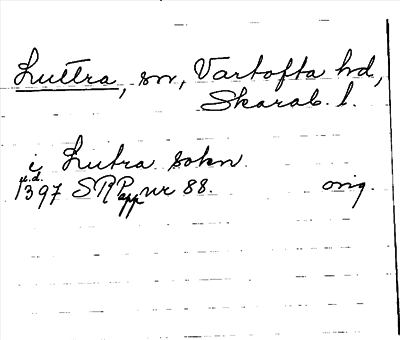 Luttra, sn, Vartofta hd,
Skarab. l.
i Lutra sokn
u.d.
1397 SRPapp nr 88. orig.